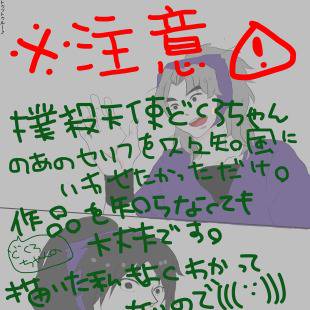 ※注意!
撲殺天使どくろちゃん
のあのセリフを
風に
いわせたかっただけ。
作品を知らなくても
大丈夫です。
描いた私もよくわかって
ないので